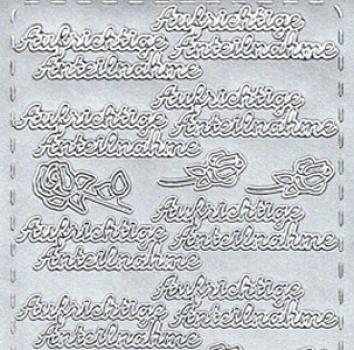 Aufrichtige
Anteilnahme
Aufrichtige
Anteilnahme
Aufrichtige
Anteilnahme
Aufrichtige
Anteilnahme
Aufrichtige
Anteilnahme
Aufrichtige
Anteilnahme
Aufrichtige
Anteilnahme
Aufrichtige
Anteilnahme